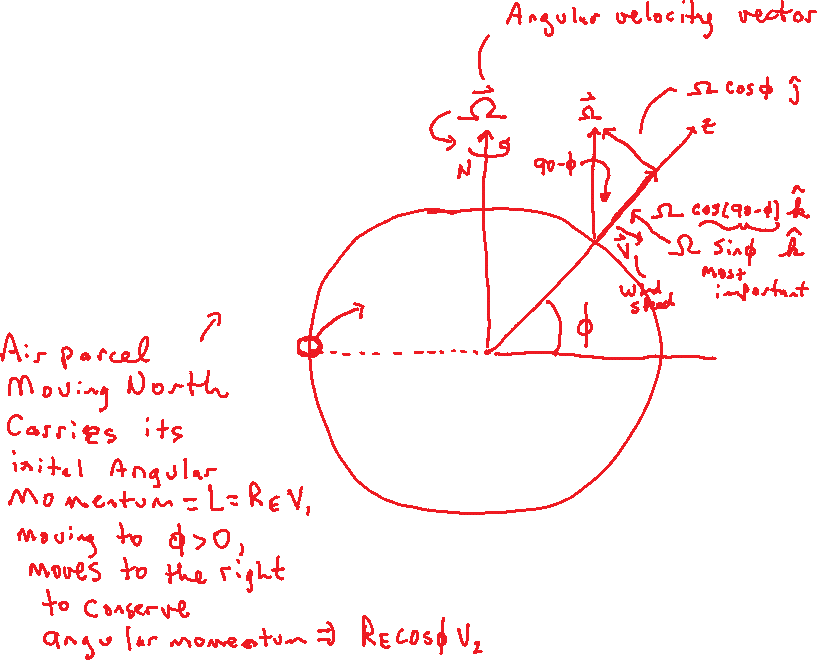 Angular velocity vector
Ω⃗
N S
Ω⃗
Ω cosφ ĵ
z
90-φ
Ω cos(90-φ) k̂
Ω sinφ k̂
most important
V⃗
wind speed
φ
Air parcel
Moving North
Carries its
initel Angular
Momentum = L = R_E V,
moving to φ>0,
moves to the right
to conserve
angular momentum ⇒ R_E cosφ V_2